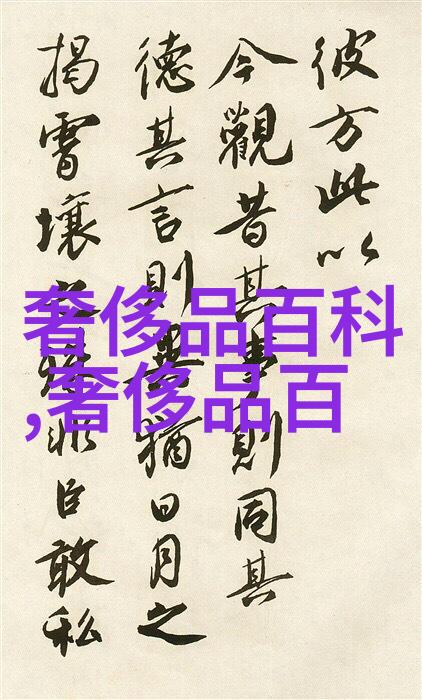 彼方此以
今觀昔其事則同其
德其言則異猶日月之
揭霄壤之殊非臣敢私
奢侈品百科
,奢侈品百